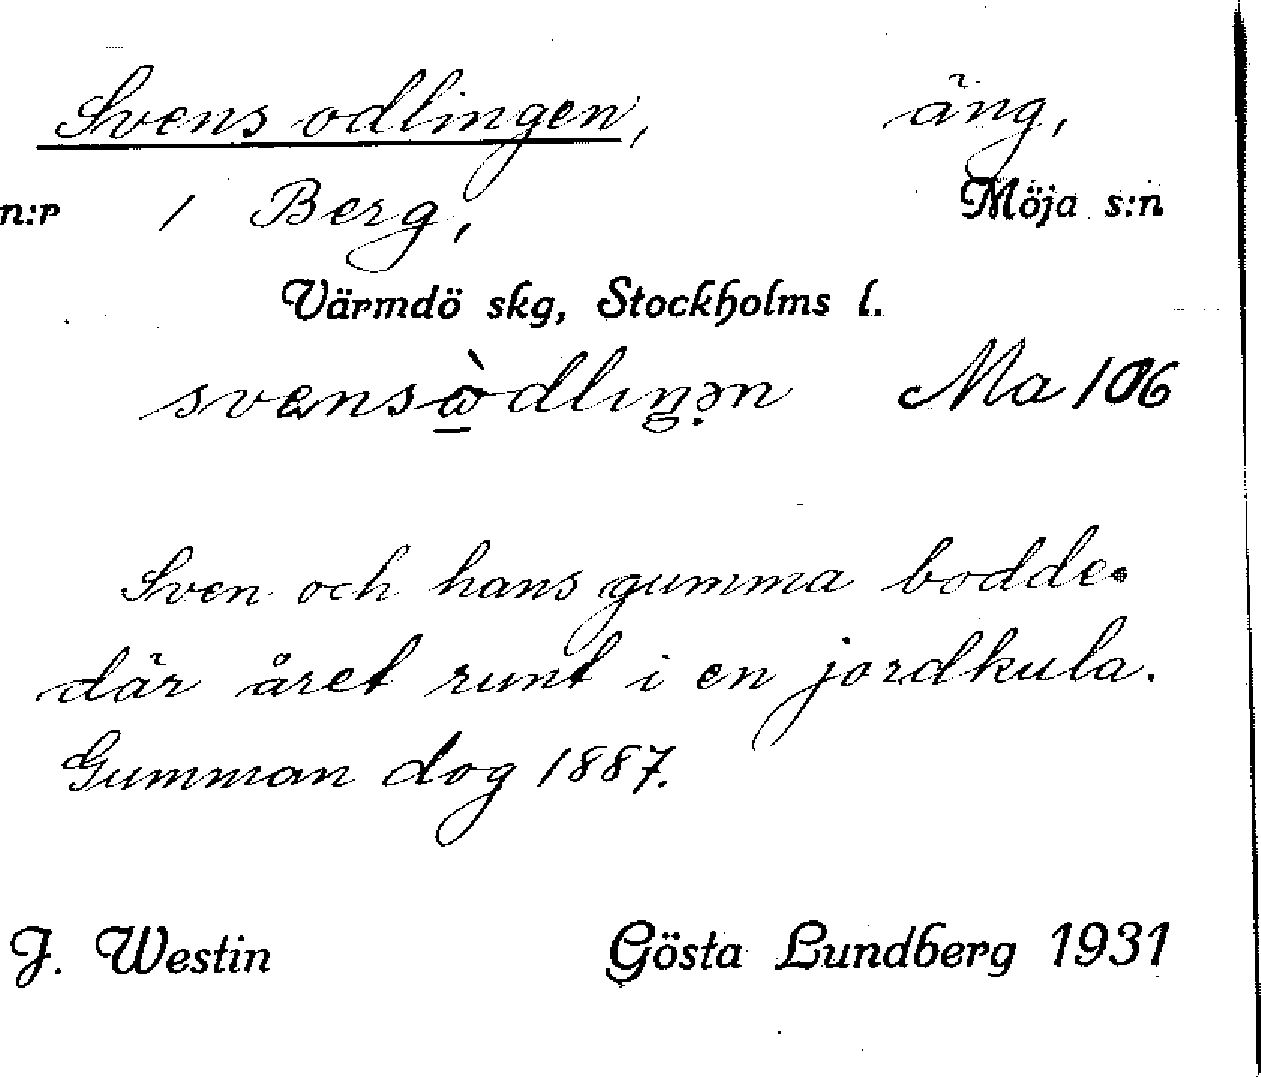 Svens odlingen, äng,
n:r 1 Berg, Möja s:n
Värmdö skg, Stockholms l.
Ma 106
Sven och hans gumma bodde
där året runt i en jordkula.
Gumman dog 1887.
J. Westin Gösta Lundberg 1931